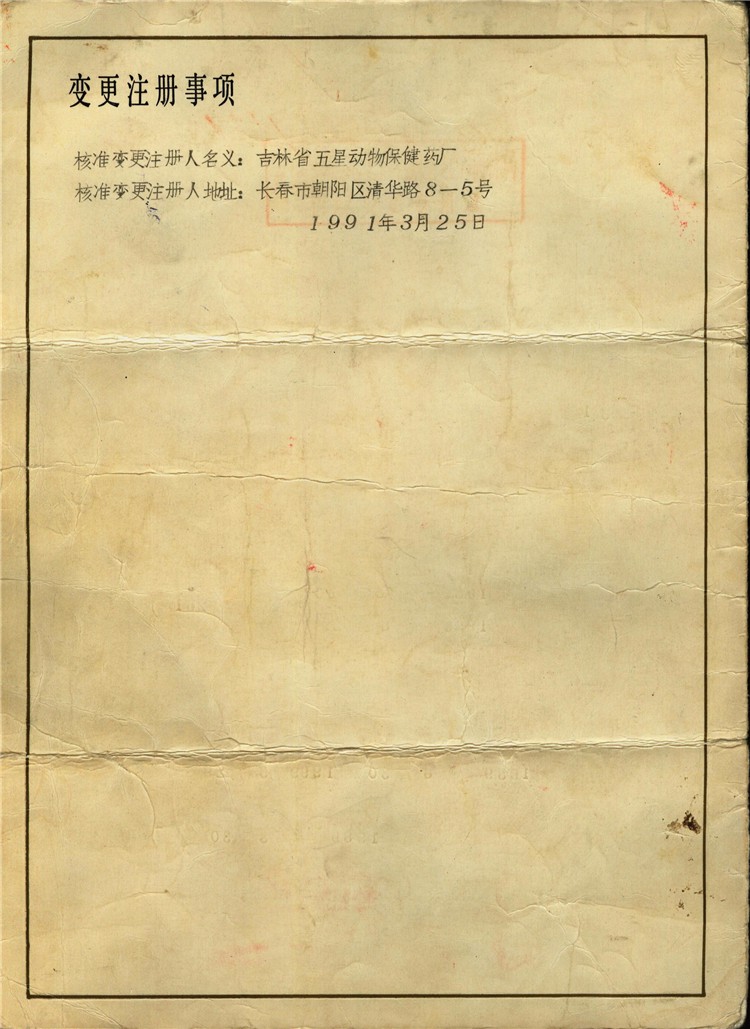 变更注册事项
核准变更注册人名义：吉林省五星动物保健药厂
核准变更注册人地址：长春市朝阳区清华路8—5号
1991年3月25日